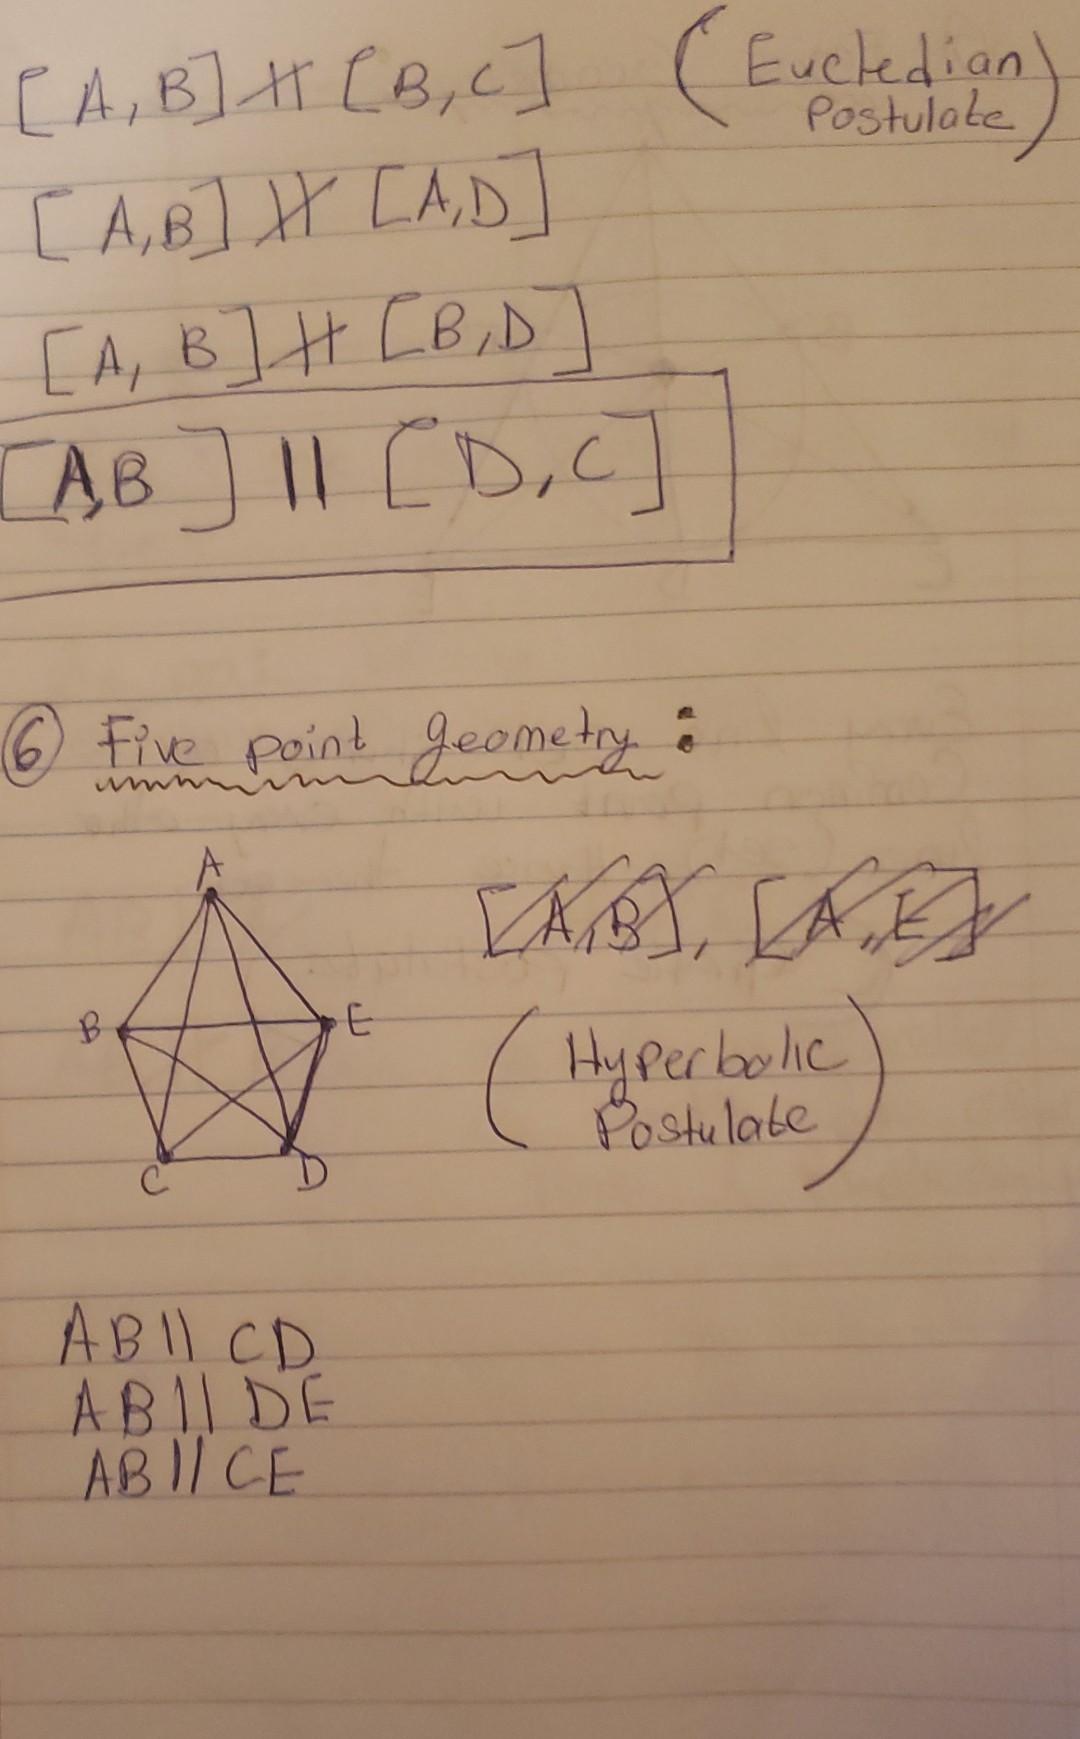 [A, B] ∦ [B, C] (Eucledian
Postulate)
[A, B] ∦ [A, D]
[A, B] ∦ [B, D]
[A, B] || [D, C]
6 Five point geometry :
A
[A, B], [A, E]
B E
(Hyperbolic
Postulate)
C D
AB || CD
AB || DE
AB || CE